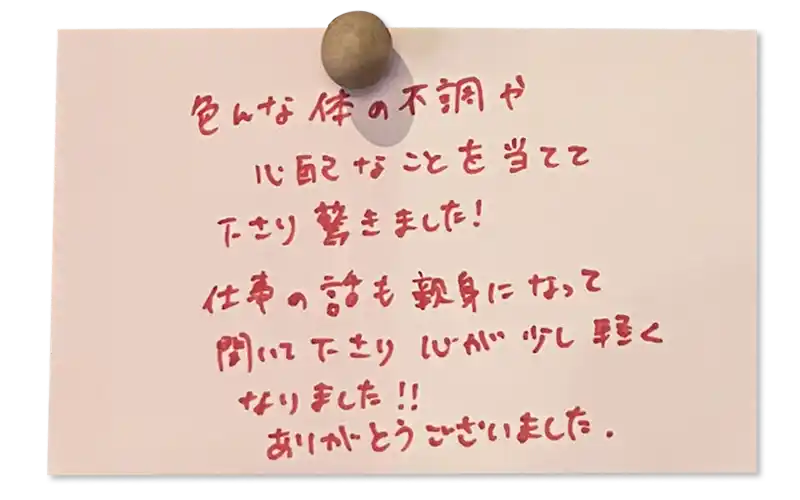 色んな体の不調や
心配なことを当てて
下さり驚きました!
仕事の話も親身になって
聞いて下さり心が少し軽く
なりました!!
ありがとうございました.